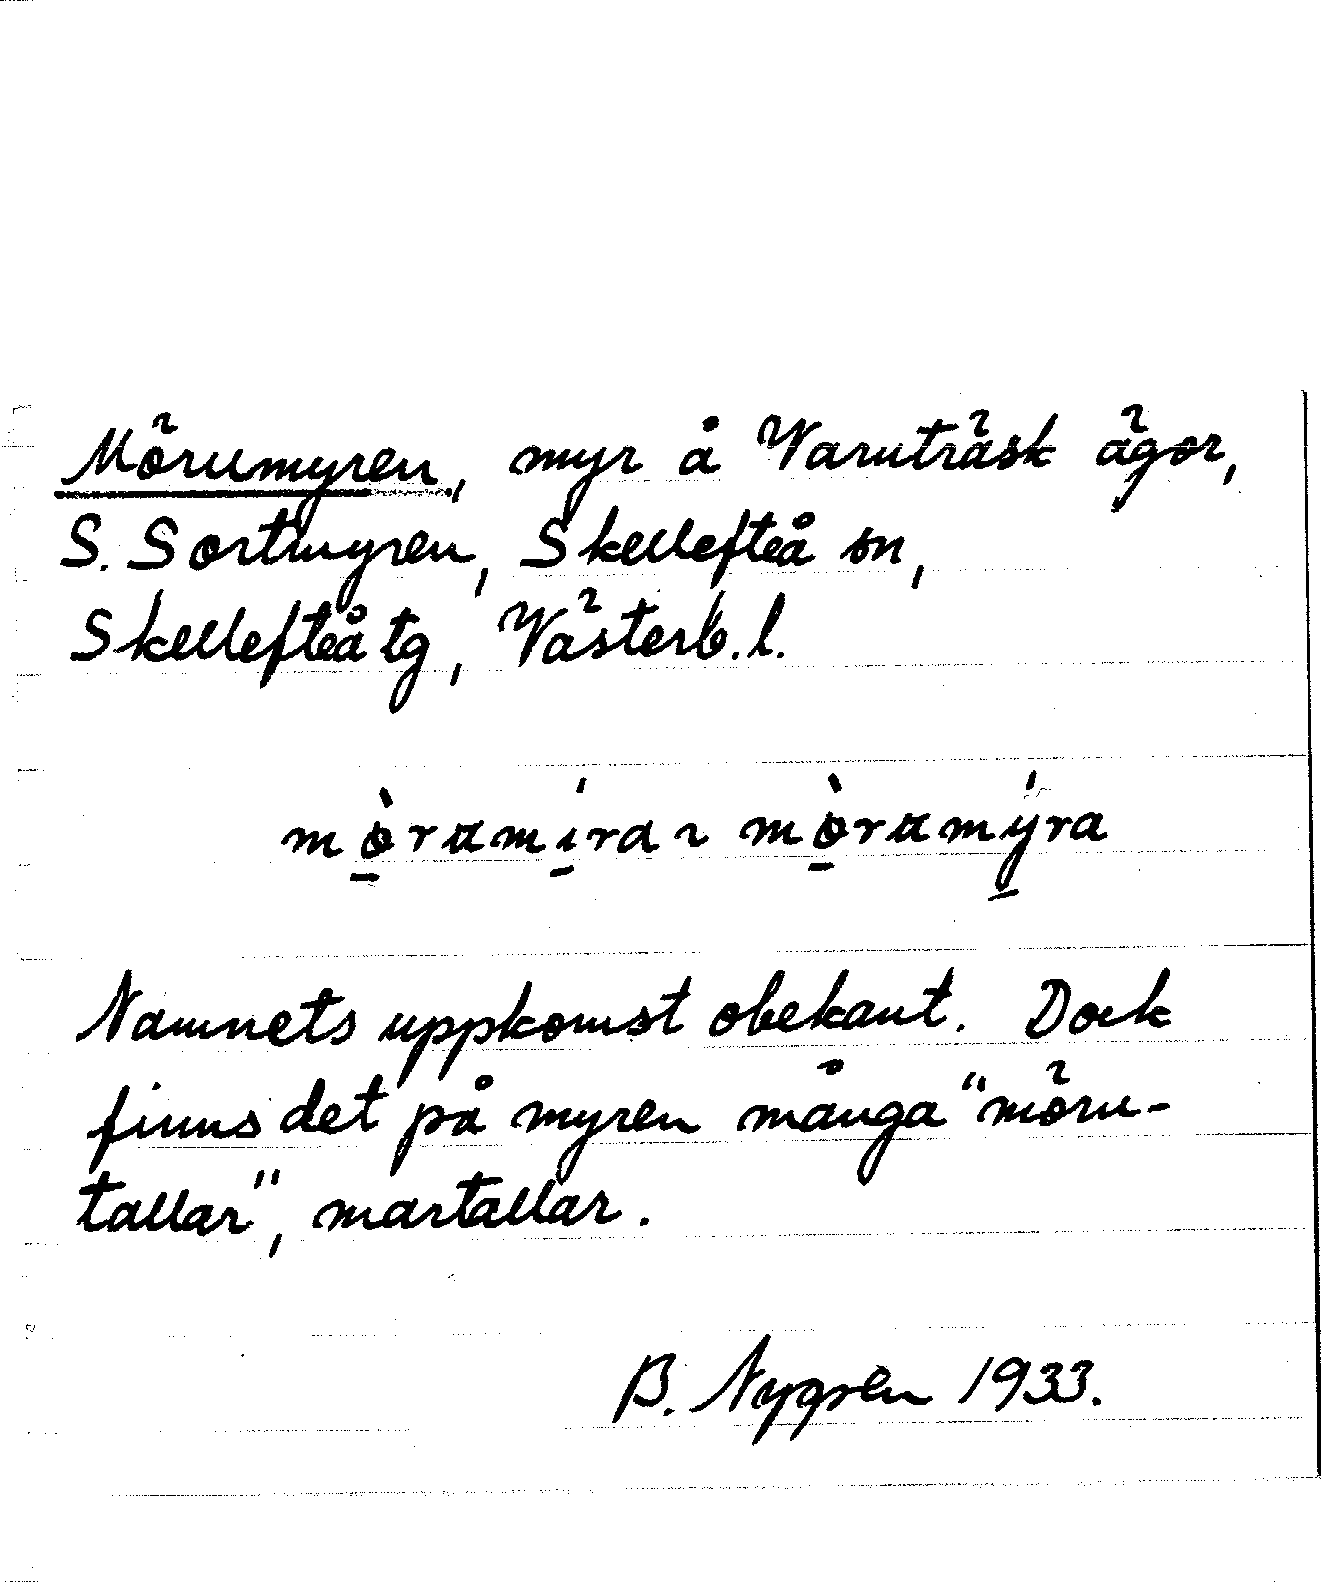 Mörumyren, myr å Varuträsk ägor,
S. Sortmyren, Skellefteå sn,
Skellefteå tg, Västerb. l.
mò̱ramí̱ra ~ mò̱ramý̱ra
Namnets uppkomst obekant. Dock
finns det på myren många "möru-
tallar", martallar.
B. Nygren 1933.